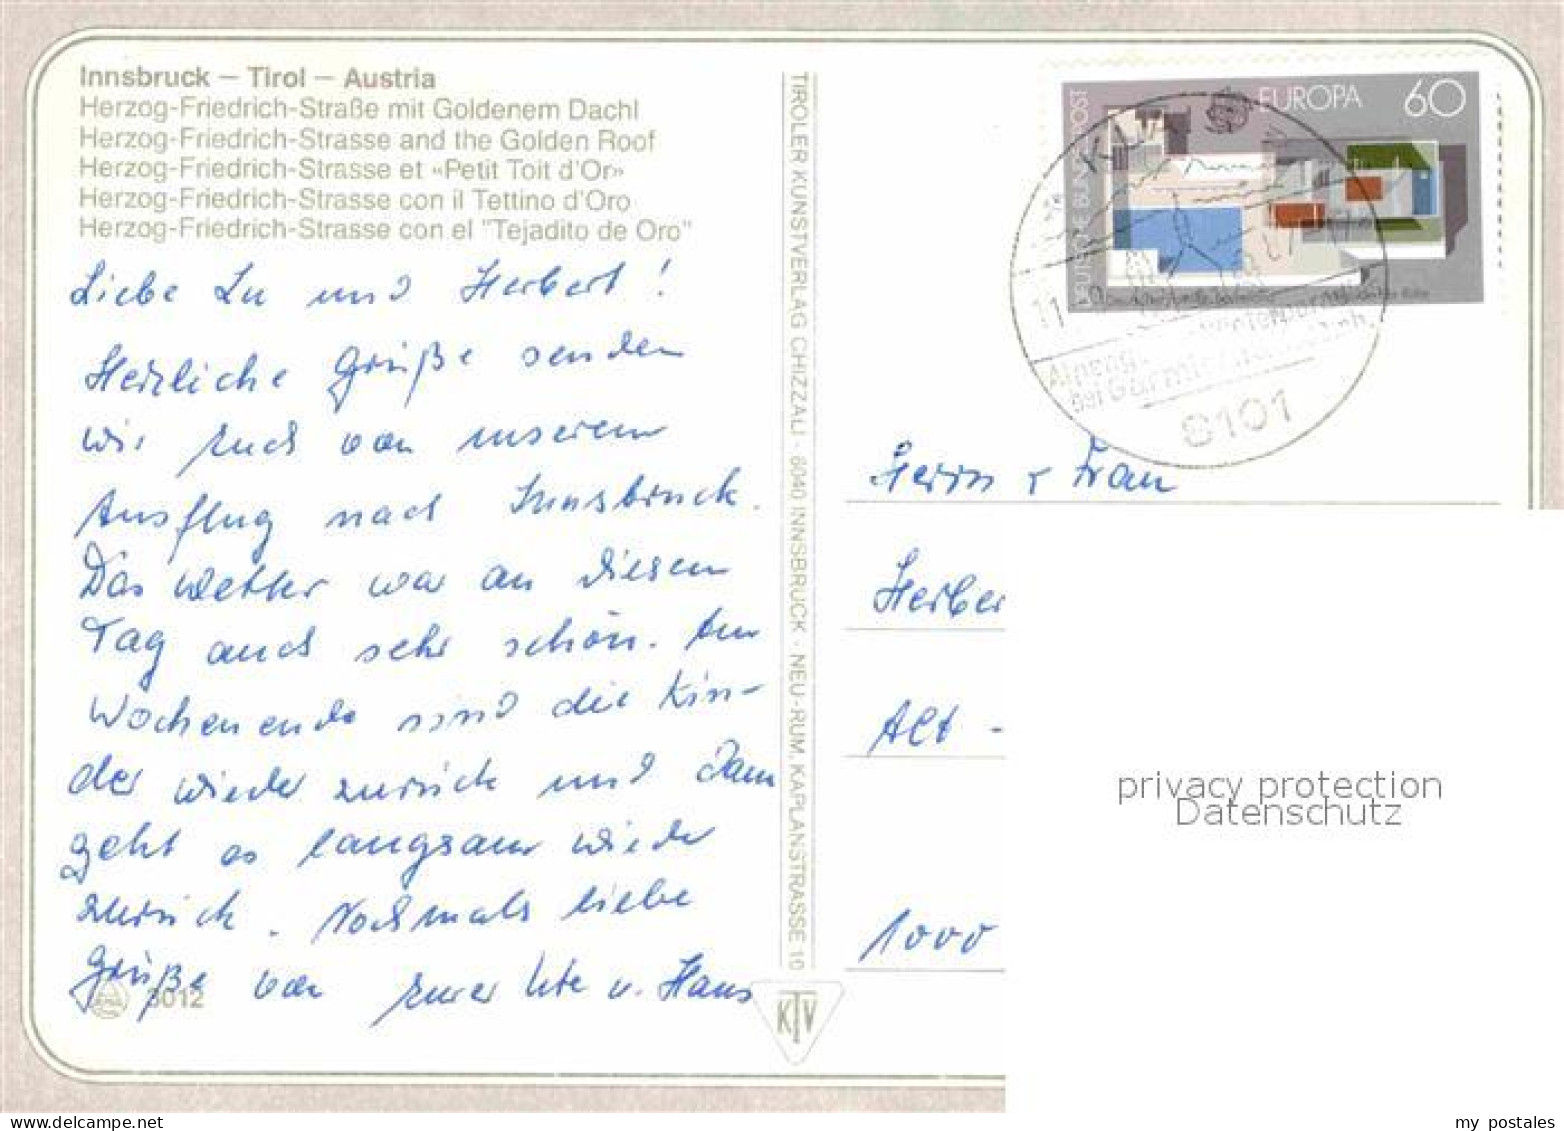 Innsbruck – Tirol – Austria
Herzog-Friedrich-Straße mit Goldenem Dachl
Herzog-Friedrich-Strasse and the Golden Roof
Herzog-Friedrich-Strasse et «Petit Toit d'Or»
Herzog-Friedrich-Strasse con il Tettino d'Oro
Herzog-Friedrich-Strasse con el "Tejadito de Oro"
Liebe Lu und Herbert!
Herzliche Grüße senden
wir Euch von unserem
Ausflug nach Innsbruck.
Das Wetter war an diesem
Tag auch sehr schön. Am
Wochenende sind die Kin-
der wieder zurück und dann
geht es langsam wieder
zurück. Nochmals liebe
Grüße von Eurer Ute u. Hans
3012
TIROLER KUNSTVERLAG CHIZZALI · 6040 INNSBRUCK · NEU-RUM, KAPLANSTRASSE 10
KTV
DEUTSCHE BUNDESPOST
EUROPA 60
11
8101
Herrn + Frau
Herber
Alt -
1000
privacy protection
Datenschutz
my postales